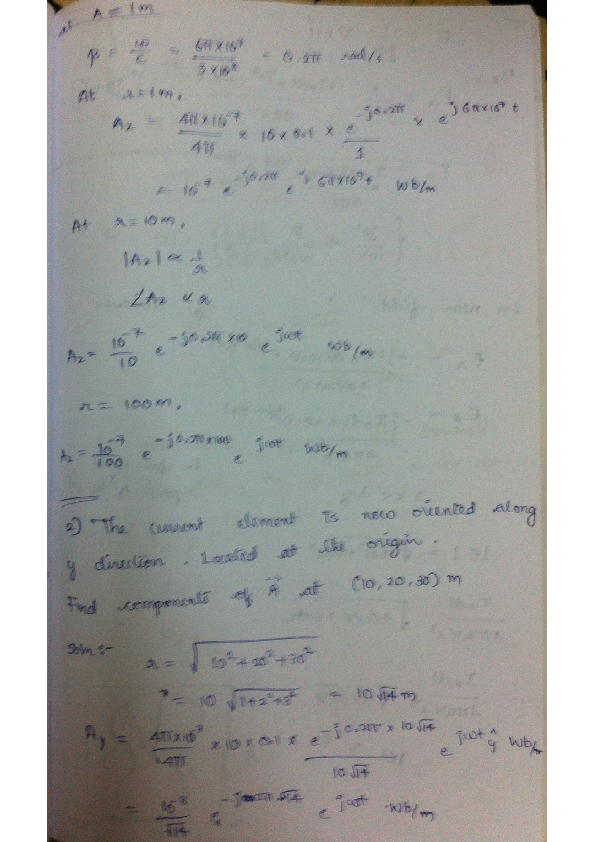 at r = 1m
β = ω/c = 6π×10⁷ / 3×10⁸ = 0.2π rad/s
At r = 1m,
Az = 4π×10⁻⁷ / 4π × 10 × 0.1 × e^(-j0.2π) / 1 × e^(j6π×10⁷t)
= 10⁻⁷ e^(-j0.2π) e^(j6π×10⁷t) Wb/m
At r = 10m,
|Az| ∝ 1/r
∠Az ∝ r
Az = 10⁻⁷ / 10 e^(-j0.2π×10) e^(jωt) Wb/m
r = 100m,
Az = 10⁻⁷ / 100 e^(-j0.2π×100) e^(jωt) Wb/m
2) The current element is now oriented along
y direction. Located at the origin.
Find components of A⃗ at (10, 20, 30) m
Soln:-
r = √(10² + 20² + 30²)
r = 10 √(1+2²+3²) = 10√14 m
Ay = 4π×10⁻⁷ / 4π × 10 × 0.1 × e^(-j0.2π × 10√14) / 10√14 e^(jωt) ŷ Wb/m
= 10⁻⁸ / √14 e^(-j √14) e^(jωt) Wb/m